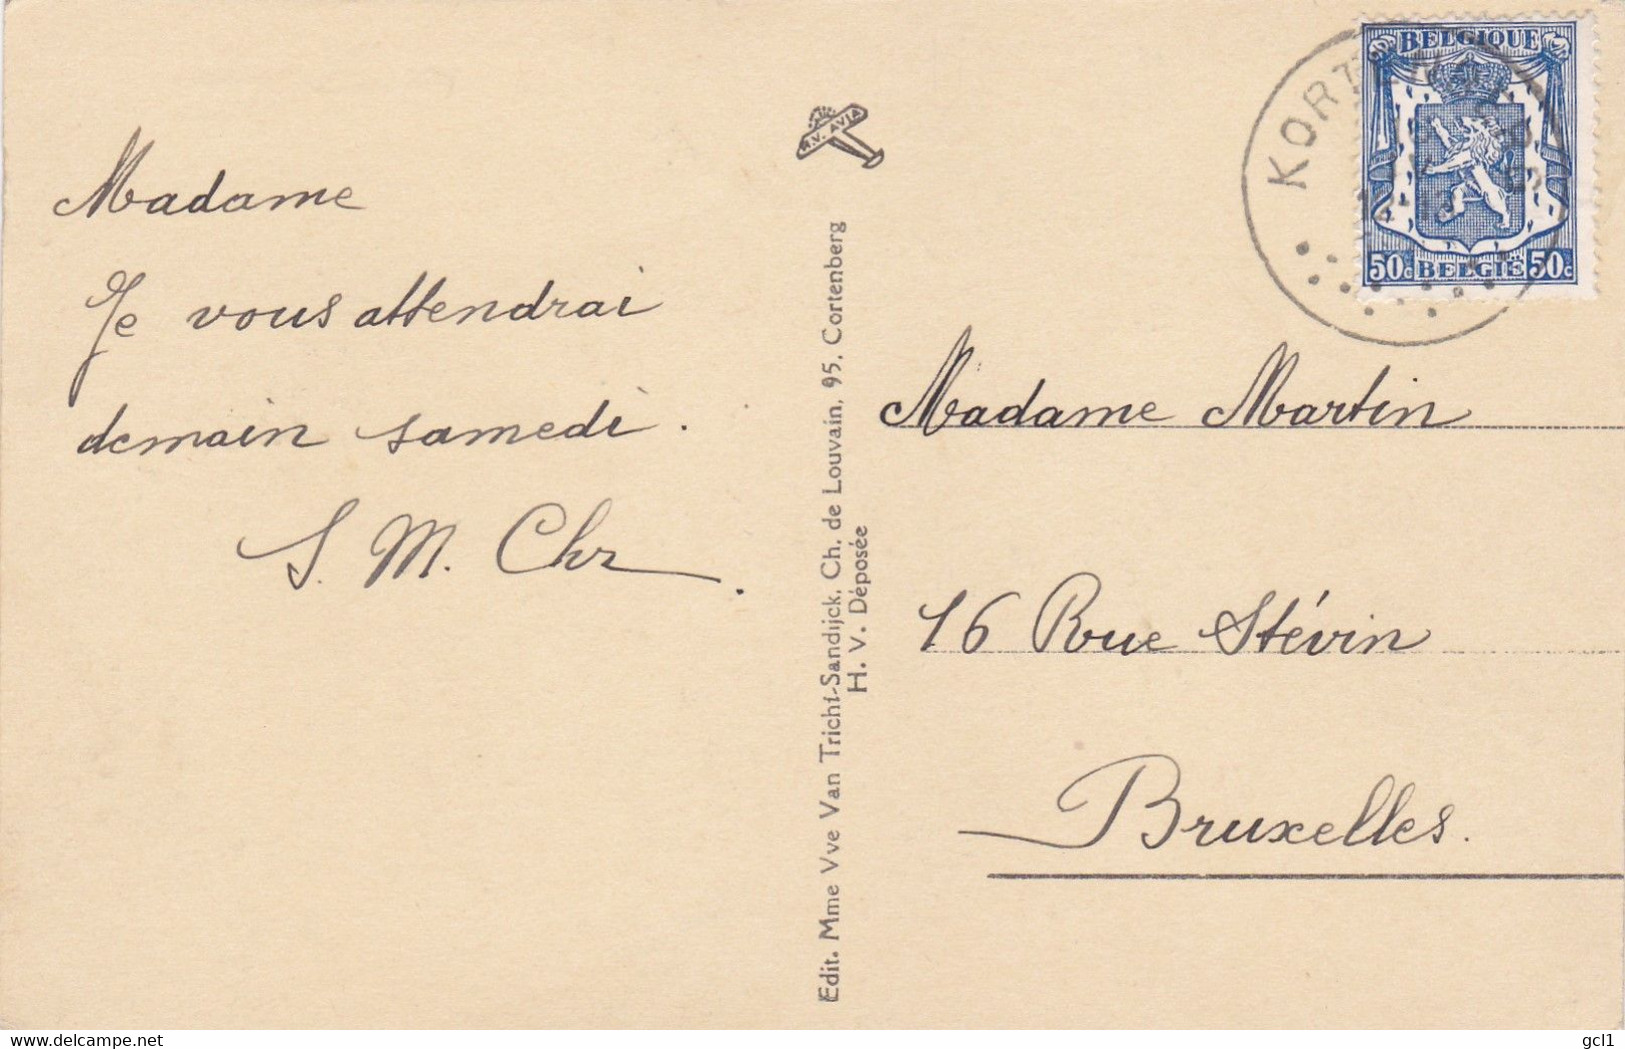 Madame
Je vous attendrai
demain samedi.
S. M. Chr
H.V. AVIA
Edit. Mme Vve Van Tricht-Sandijck, Ch. de Louvain, 95, Cortenberg
H. V. Déposée
BELGIQUE
50c BELGIË 50c
Madame Martin
16 Rue Stévin
Bruxelles.
delcampe.net
gcl1